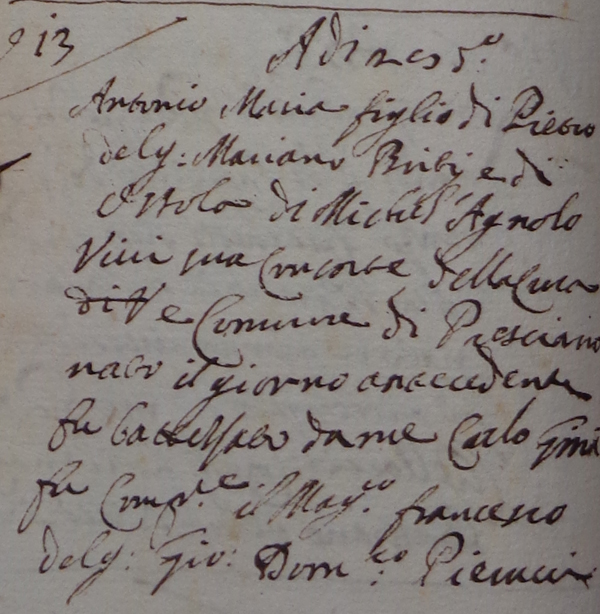 13
Adi nes 5.º
Antonio Maria figlio di Pietro
del q: Mariano e di
di Michel' Agnolo
Vivi sua Consorte della Cura
di V e Comune di Presciano
nato il giorno antecedente
fu battezzato da me Carlo
fu Comp.re il Mag.co francesco
del q: Gio: Dom.co Pierucci